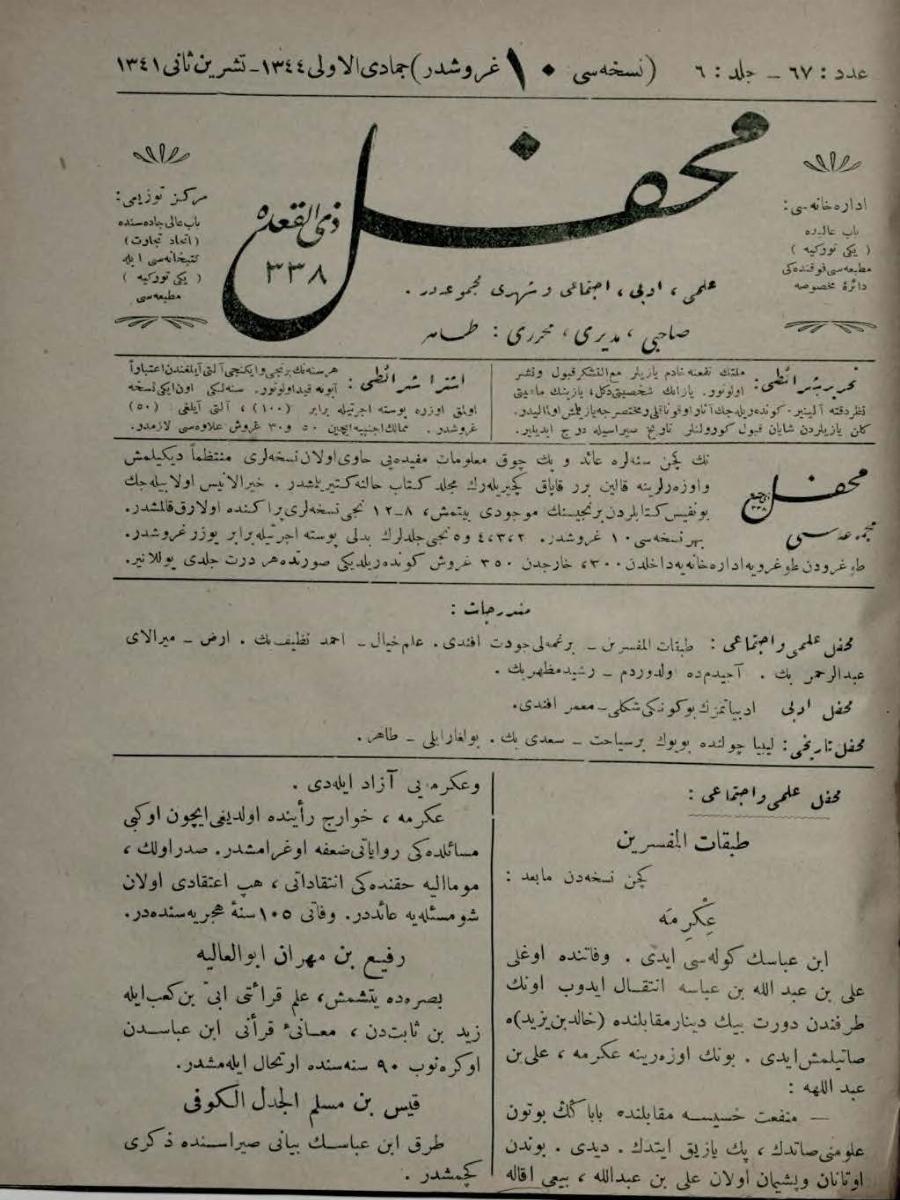 عدد : ٦٧ – جلد : ٦ (نسخه‌سی ١٠ غروشدر) جمادی الاولی ١٣٤٤ – تشرین ثانی ١٣٤١
محفل
ذی القعده
٣٣٨
اداره‌خانه‌سی :
باب عالیده
( یکی تورکیه )
مطبعه‌سی فوقنده‌کی
دائرهٔ مخصوصه
مرکز توزیعی :
باب عالی جاده‌سنده
(اتحاد تجارت)
کتبخانه‌سی ایله
( یکی تورکیه )
مطبعه‌سی
علمی ، ادبی ، اجتماعی و شهری مجموعه‌در .
صاحبی ، مدیری ، محرری : طاهر
تحریر شرائطی : ملتك نفعنه خادم یازیلر مع‌التشکر قبول و نشر
اولونور. یازانك شخصیتی دکل، یازینك ماهیتی
نظر دقته آلینیر. کونده‌ریله‌جك آثار اوقوناقلی و مختصرجه یازیلمش اولمالیدر.
کلن یازیلردن شایان قبول کورولنلر تاریخ صیراسیله درج ایدیلیر.
اشترا شرائطی : هر سنه‌نك برنجی و ایکنجی آلتی آیلغندن اعتباراً
آبونه قید اولونور. سنه‌لکی اون ایکی نسخه
اولمق اوزره پوسته اجرتیله برابر (١٠٠) ، آلتی آیلغی (٥٠)
غروشدر . ممالك اجنبیه ایچین ٥٠ و ٣٠ غروش علاوه‌سی لازمدر.
محفل
مجموعه‌سی
نك کچن سنه‌لره عائد و پك چوق معلومات مفیده‌یی حاوی اولان نسخه‌لری منتظماً دیکیلمش
و اوزه‌رلرینه قالین برر قاپاق کچیریله‌رك مجلد کتاب حالنه کتیریلمشدر . خیرالانیس اولابیله‌جك
بو نفیس کتابلردن برنجیسنك موجودی بیتمش، ٨-١٢ نجی نسخه‌لری پراکنده اولارق قالمشدر.
بهر نسخه‌سی ١٠ غروشدر. ٢،٣،٤ و ٥ نجی جلدلرك بدلی پوسته اجرتیله برابر یوزر غروشدر.
طوغرودن طوغرویه اداره‌خانه‌یه داخلدن ٣٠٠ ، خارجدن ٣٥٠ غروش کونده‌ریلدیکی صورتده هر درت جلدی یوللانیر.
مندرجات :
محفل علمی و اجتماعی : طبقات المفسرین – برغمه‌لی جودت افندی . علم خیال – احمد نظیف بك . ارض – میرالای
عبدالرحمن بك . آجیدم ده اولدوردم – رشید مظهر بك .
محفل ادبی ادبیاتمزك بوکونکی شکلی – معمر افندی.
محفل تاریخی : لیبیا چولنده بویوك بر سیاحت – سعدی بك . بولغارایلی – طاهر .
محفل علمی و اجتماعی :
طبقات المفسرین
کچن نسخه‌دن مابعد :
عِکْرِمَه
ابن عباسك کوله‌سی ایدی . وفاتنده اوغلی
علی بن عبد الله بن عباسه انتقال ایدوب اونك
طرفندن دورت بیك دینار مقابلنده (خالد بن یزید)ه
صاتیلمش ایدی . بونك اوزه‌رینه عکرمه ، علی بن
عبد اللهه :
— منفعت خسیسه مقابلنده باباكڭ بوتون
علومنی صاتدك ، پك یازیق ایتدك . دیدی . بوندن
اوتانان و پشیمان اولان علی بن عبدالله ، بیعی اقاله
و عکرمه‌یی آزاد ایله‌دی .
عکرمه ، خوارج رأینده اولدیغی ایچون اوکبی
مسائلده‌کی روایاتی ضعفه اوغرامشدر. صدر اولك ،
مومالیه حقنده‌کی انتقاداتی ، هپ اعتقادی اولان
شو مسئله‌یه عائددر. وفاتی ١٠٥ سنهٔ هجریه‌سنده‌در.
رفیع بن مهران ابوالعالیه
بصره‌ده یتشمش، علم قرائتی ابیّ بن کعب ایله
زید بن ثابت‌دن ، معانئ قرآنی ابن عباسدن
اوکره‌نوب ٩٠ سنه‌سنده ارتحال ایله‌مشدر.
قیس بن مسلم الجدل الکوفی
طرق ابن عباسك بیانی صیراسنده ذکری
کچمشدر .